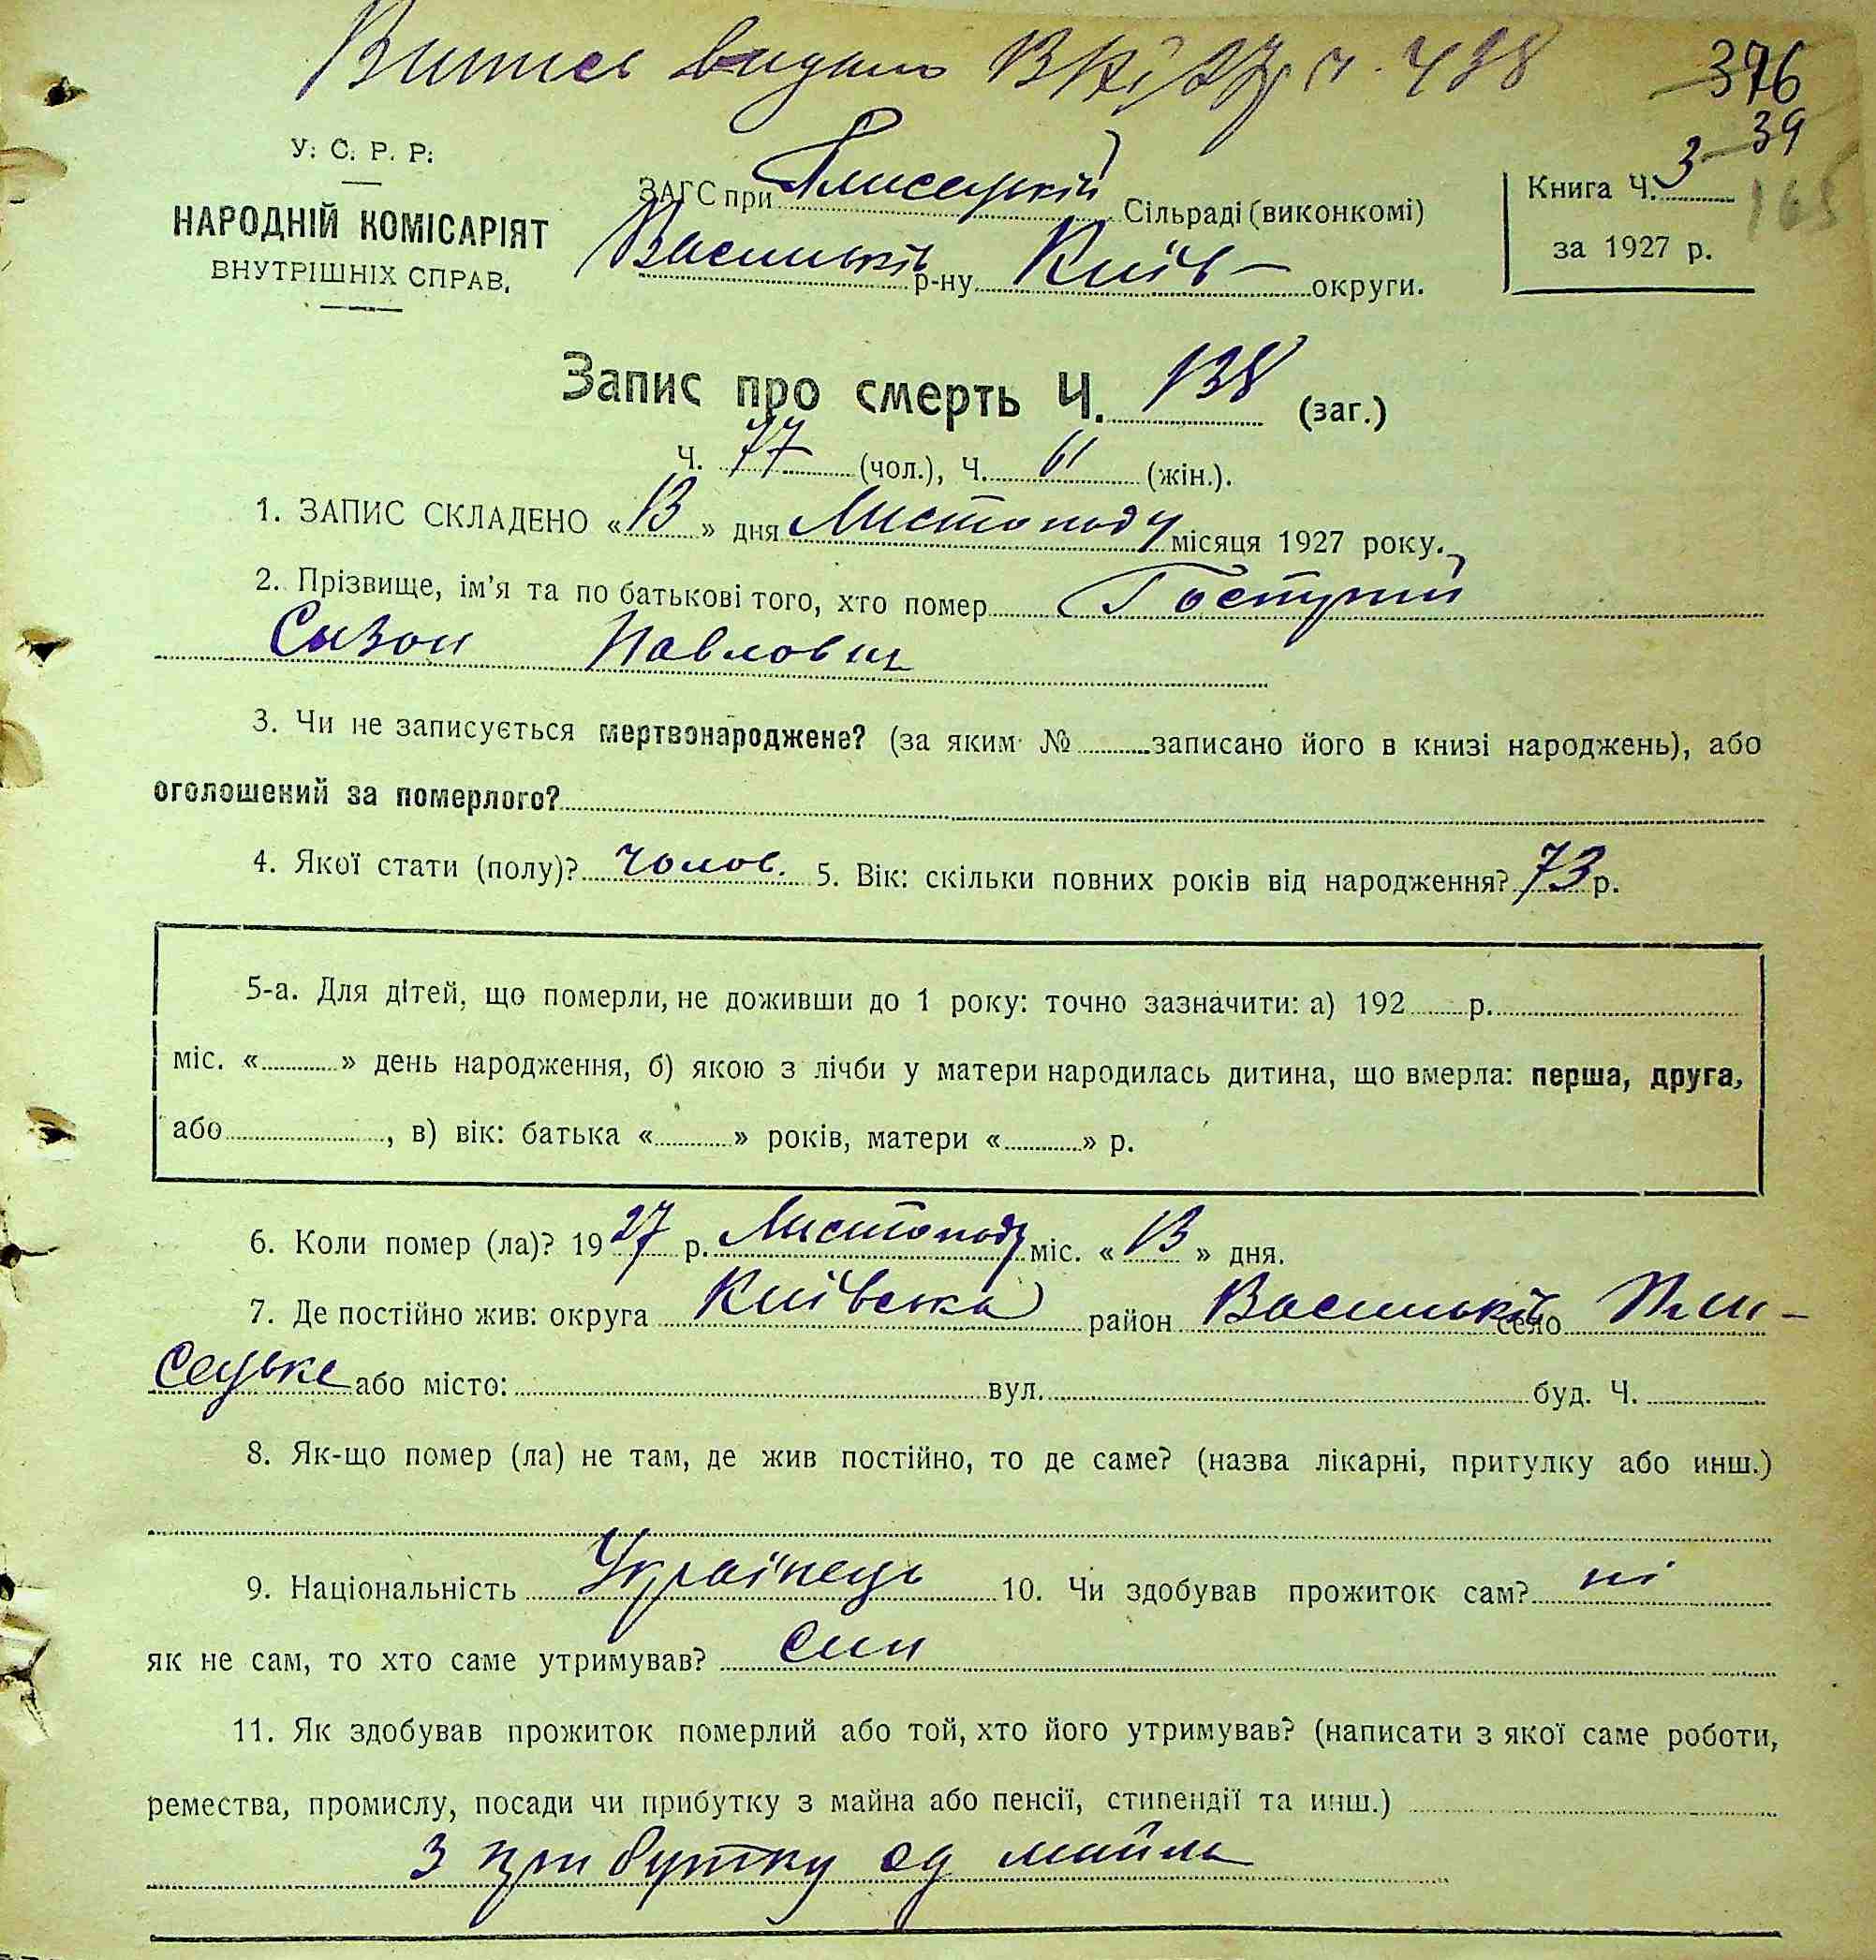 Витись видано 13/XI/27 р. ч. 498
376
39
У. С. Р. Р.
НАРОДНІЙ КОМІСАРІЯТ
ВНУТРІШНІХ СПРАВ.
ЗАГС при Плисецькій Сільраді (виконкомі)
Васильків р-ну Київ округи.
Книга Ч. 3
165
за 1927 р.
Запис про смерть Ч. 138 (заг.)
Ч. 77 (чол.), Ч. 61 (жін.).
1. ЗАПИС СКЛАДЕНО «13» дня Листопаду місяця 1927 року.
2. Прізвище, ім'я та по батькові того, хто помер Гоступий
Сизон Павлович
3. Чи не записується мертвонароджене? (за яким № записано його в книзі народжень), або
оголошений за померлого?
4. Якої стати (полу)? Чолов. 5. Вік: скільки повних років від народження? 73 р.
5-а. Для дітей, що померли, не доживши до 1 року: точно зазначити: а) 192 р.
міс. « » день народження, б) якою з лічби у матери народилась дитина, що вмерла: перша, друга,
або , в) вік: батька « » років, матери « » р.
6. Коли помер (ла)? 1927 р. Листопаду міс. «13» дня.
7. Де постійно жив: округа Київська район Васильків село Пли-
сецьке або місто: вул. буд. Ч.
8. Як-що помер (ла) не там, де жив постійно, то де саме? (назва лікарні, притулку або инш.)
9. Національність Українець 10. Чи здобував прожиток сам? ні
як не сам, то хто саме утримував? син
11. Як здобував прожиток померлий або той, хто його утримував? (написати з якої саме роботи,
ремества, промислу, посади чи прибутку з майна або пенсії, стипендії та инш.)
З прибутку од майна